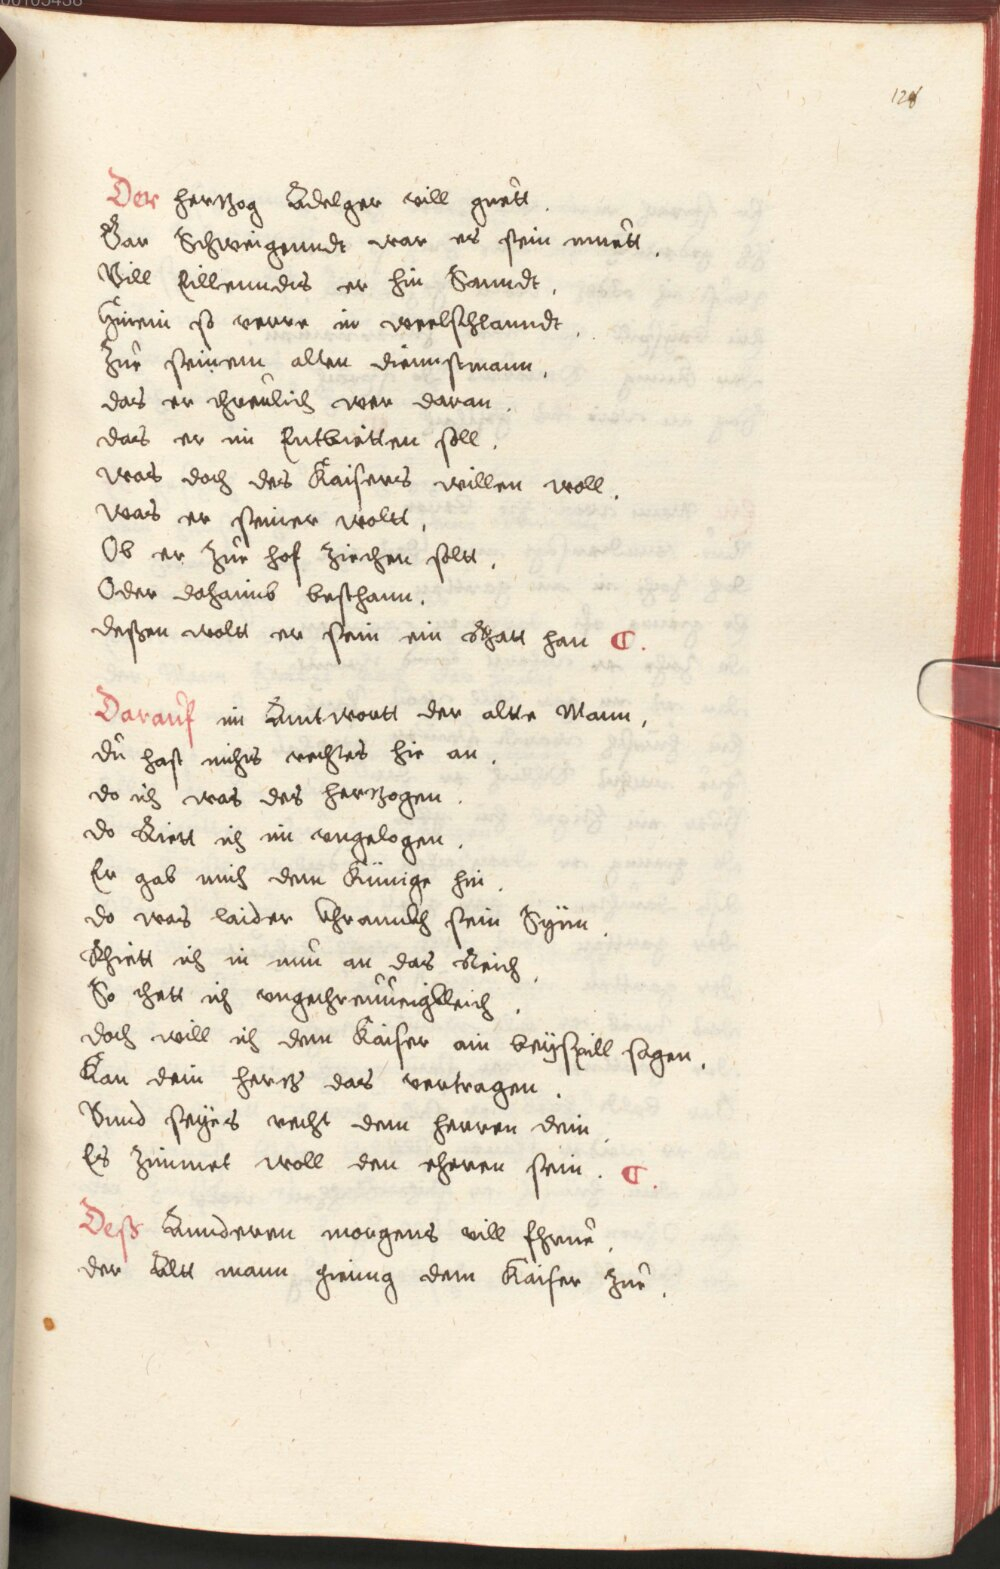 00105438
128
Der hertzog Adelger vill guett.
Gar Schweigenndt war es sein muett.
Vill Eillenndts er hin Sanndt.
Hinein so verre in weelschlanndt.
Zue seinem alten diennstmann.
das er threulich wer daran.
das er im Entbietten soll.
was doch des Kaisers willen woll.
was er seiner wolt.
Ob er Zue hof Ziechen solt.
Oder dohaimb besthann.
deßen wolt er sein ein Rhatt han C.
Darauf im Anntwortt der alte Mann.
du hast nichts rechtes hie an.
do ich was des hertzogen.
do Riett ich im vngelogen.
Er gab mich dem Künige hin.
do was laider khrannckh sein Synn.
Rhiett ich in nun an das Reich.
So thett ich vngethreuueigkleich.
doch will ich dem Kaiser ain beyspill sagen.
Kan dein hertz das vertragen.
Vnnd seyes recht dem herren dein.
Es Zimmet woll den eheren sein. C.
Deß Annderen morgens vill fhrue.
der Altt mann gienng dem Kaiser Zue.